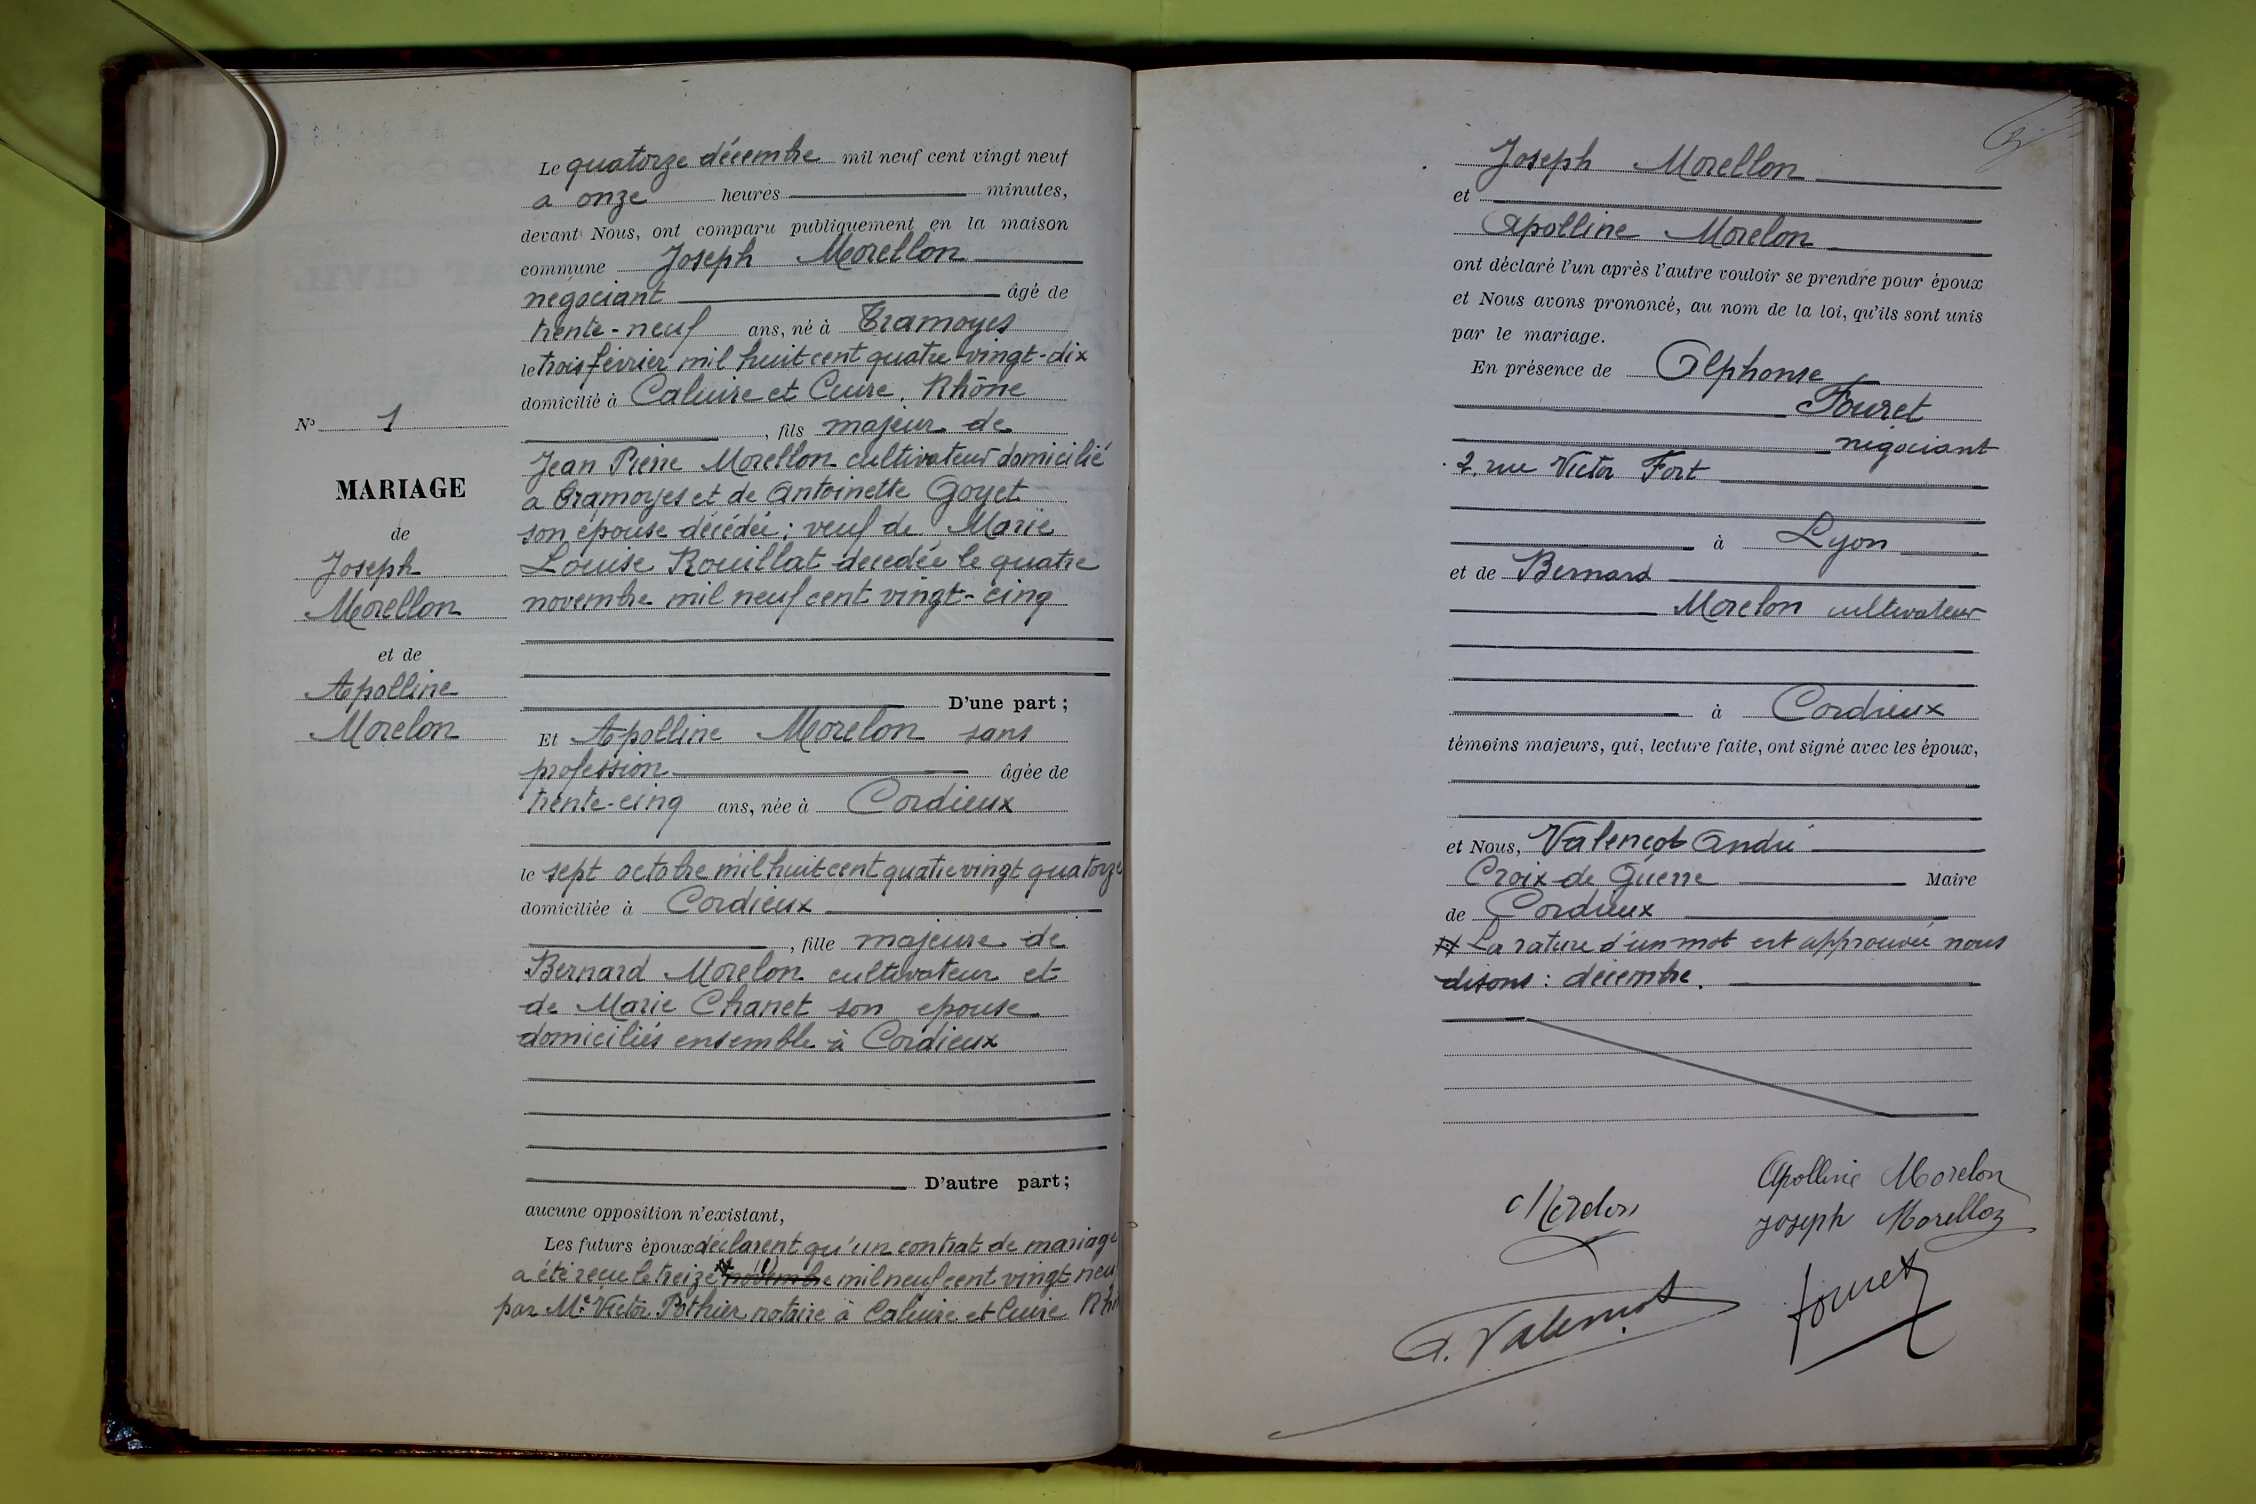 Le quatorze décembre mil neuf cent vingt neuf
a onze heures minutes,
devant Nous, ont comparu publiquement en la maison
commune Joseph Morellon
négociant âgé de
trente-neuf ans, né à Tramoyes
le trois février mil huit cent quatre-vingt-dix
domicilié à Caluire et Cuire. Rhône
, fils majeur de
Jean Pierre Morellon cultivateur domicilié
a Tramoyes et de Antoinette Goyet
son épouse décédée; veuf de Marie
Louise Rouillat decedée le quatre
novembre mil neuf cent vingt-cinq
D'une part;
Et Apolline Morelon sans
profession âgée de
trente-cinq ans, née à Cordieux
le sept octobre mil huit cent quatre vingt quatorze
domiciliée à Cordieux
, fille majeure de
Bernard Morelon cultivateur et
de Marie Chanet son epouse
domiciliés ensemble à Cordieux
D'autre part;
aucune opposition n'existant,
Les futurs époux déclarent qu'un contrat de mariage
a été recu le treize novembre mil neuf cent vingt neu
par Me Victor Pothier notaire à Caluire et Cuire Rh
No 1
MARIAGE
de
Joseph
Morellon
et de
Apolline
Morelon
Joseph Morellon
et
Apolline Morelon
ont déclaré l'un après l'autre vouloir se prendre pour époux
et Nous avons prononcé, au nom de la loi, qu'ils sont unis
par le mariage.
En présence de Alphonse
Fouret
négociant
2, rue Victor Fort
à Lyon
et de Bernard
Morelon cultivateur
à Cordieux
témoins majeurs, qui, lecture faite, ont signé avec les époux,
et Nous, Valençot André
Croix de Guerre Maire
de Cordieux
La rature d'un mot est approuvée nous
disons : décembre.
Apolline Morelon
Morelon
Joseph Morellon
fouret
A. Valençot